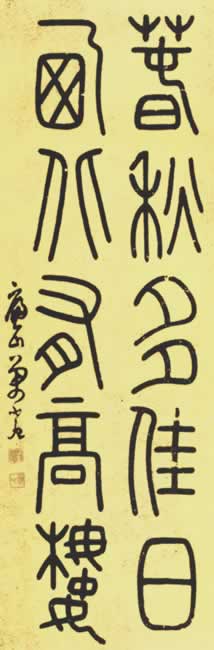 春秋多佳日
西北有高樓